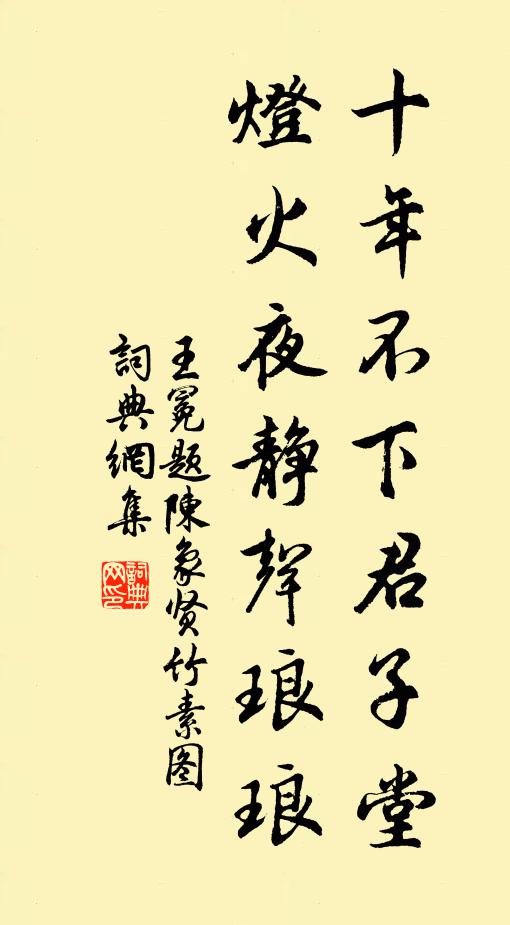 十年不下君子堂
燈火夜静聲琅琅
王冕题陳象贤竹素图
詞典網集
詞典网印